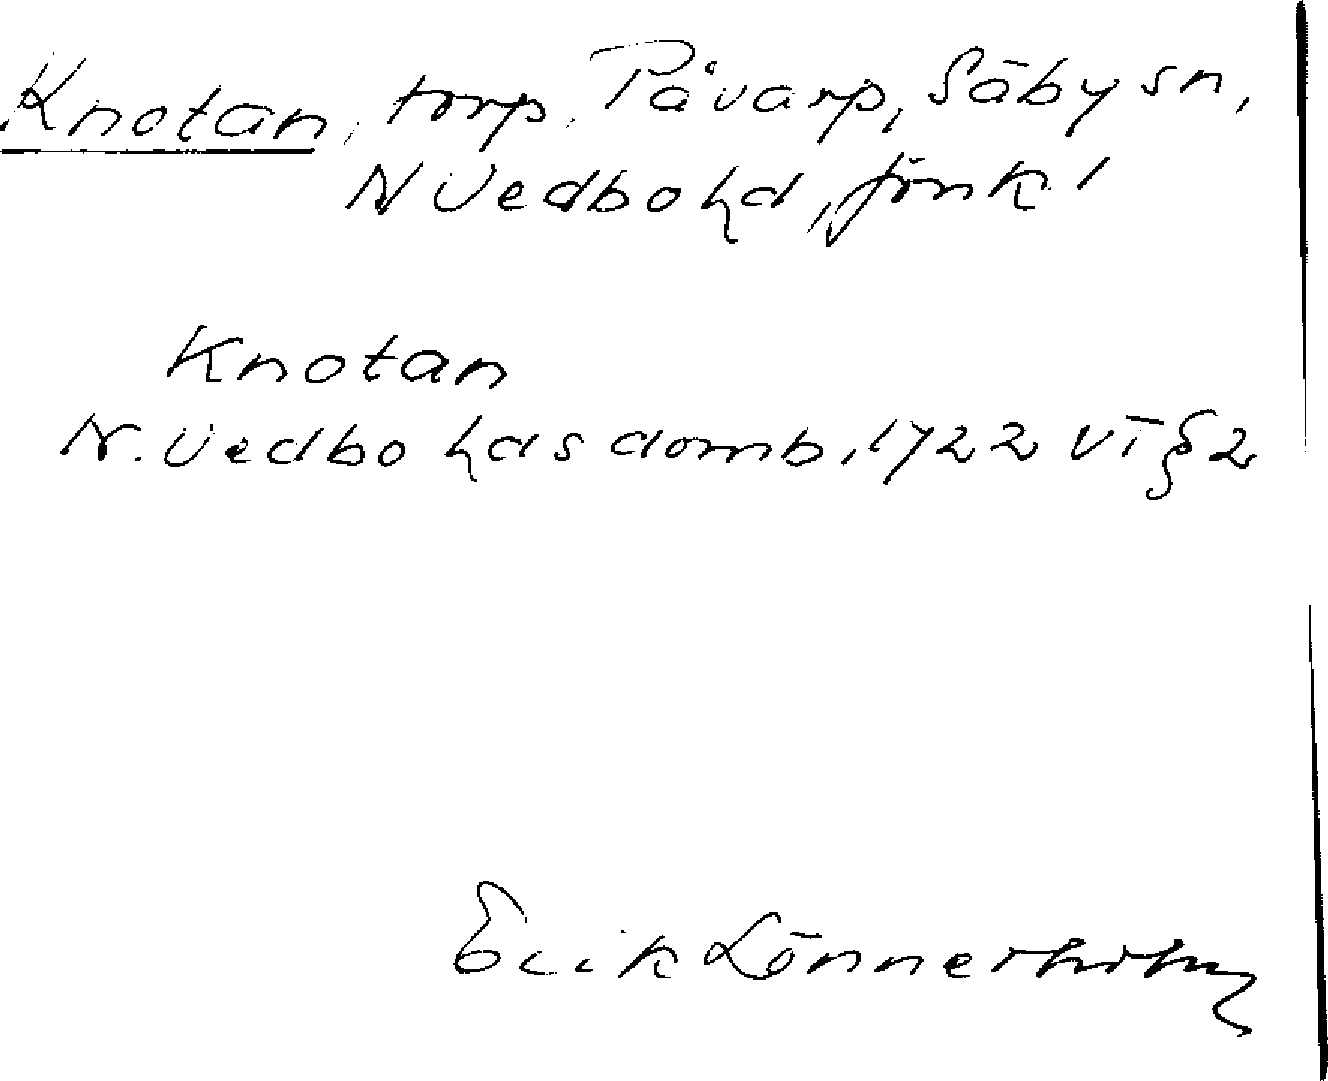 Knotan, torp, Påvarp, Säby sn,
N Vedbo hd, Jönk. l
Knotan
N. Vedbo hds domb. 1722 VT § 2
Erik Lönnerholm